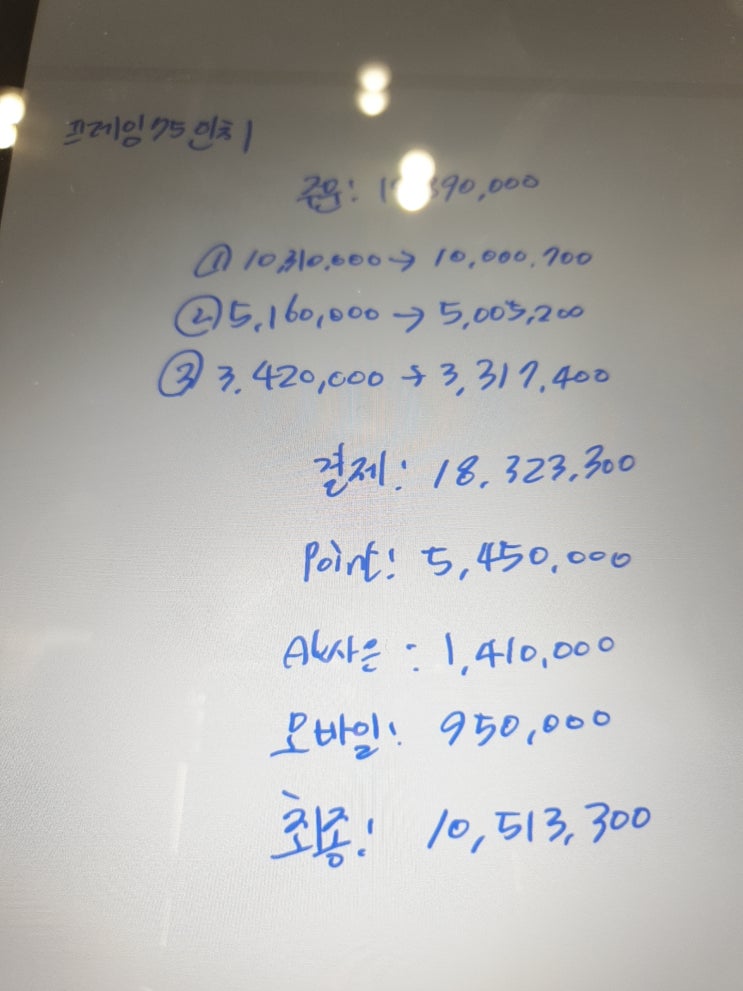 프레임 75인치
주문: 890,000
① 10,310,000 → 10,000,700
② 5,160,000 → 5,005,200
③ 3,420,000 → 3,317,400
결제: 18,323,300
Point: 5,450,000
AK사은: 1,410,000
모바일: 950,000
최종: 10,513,300